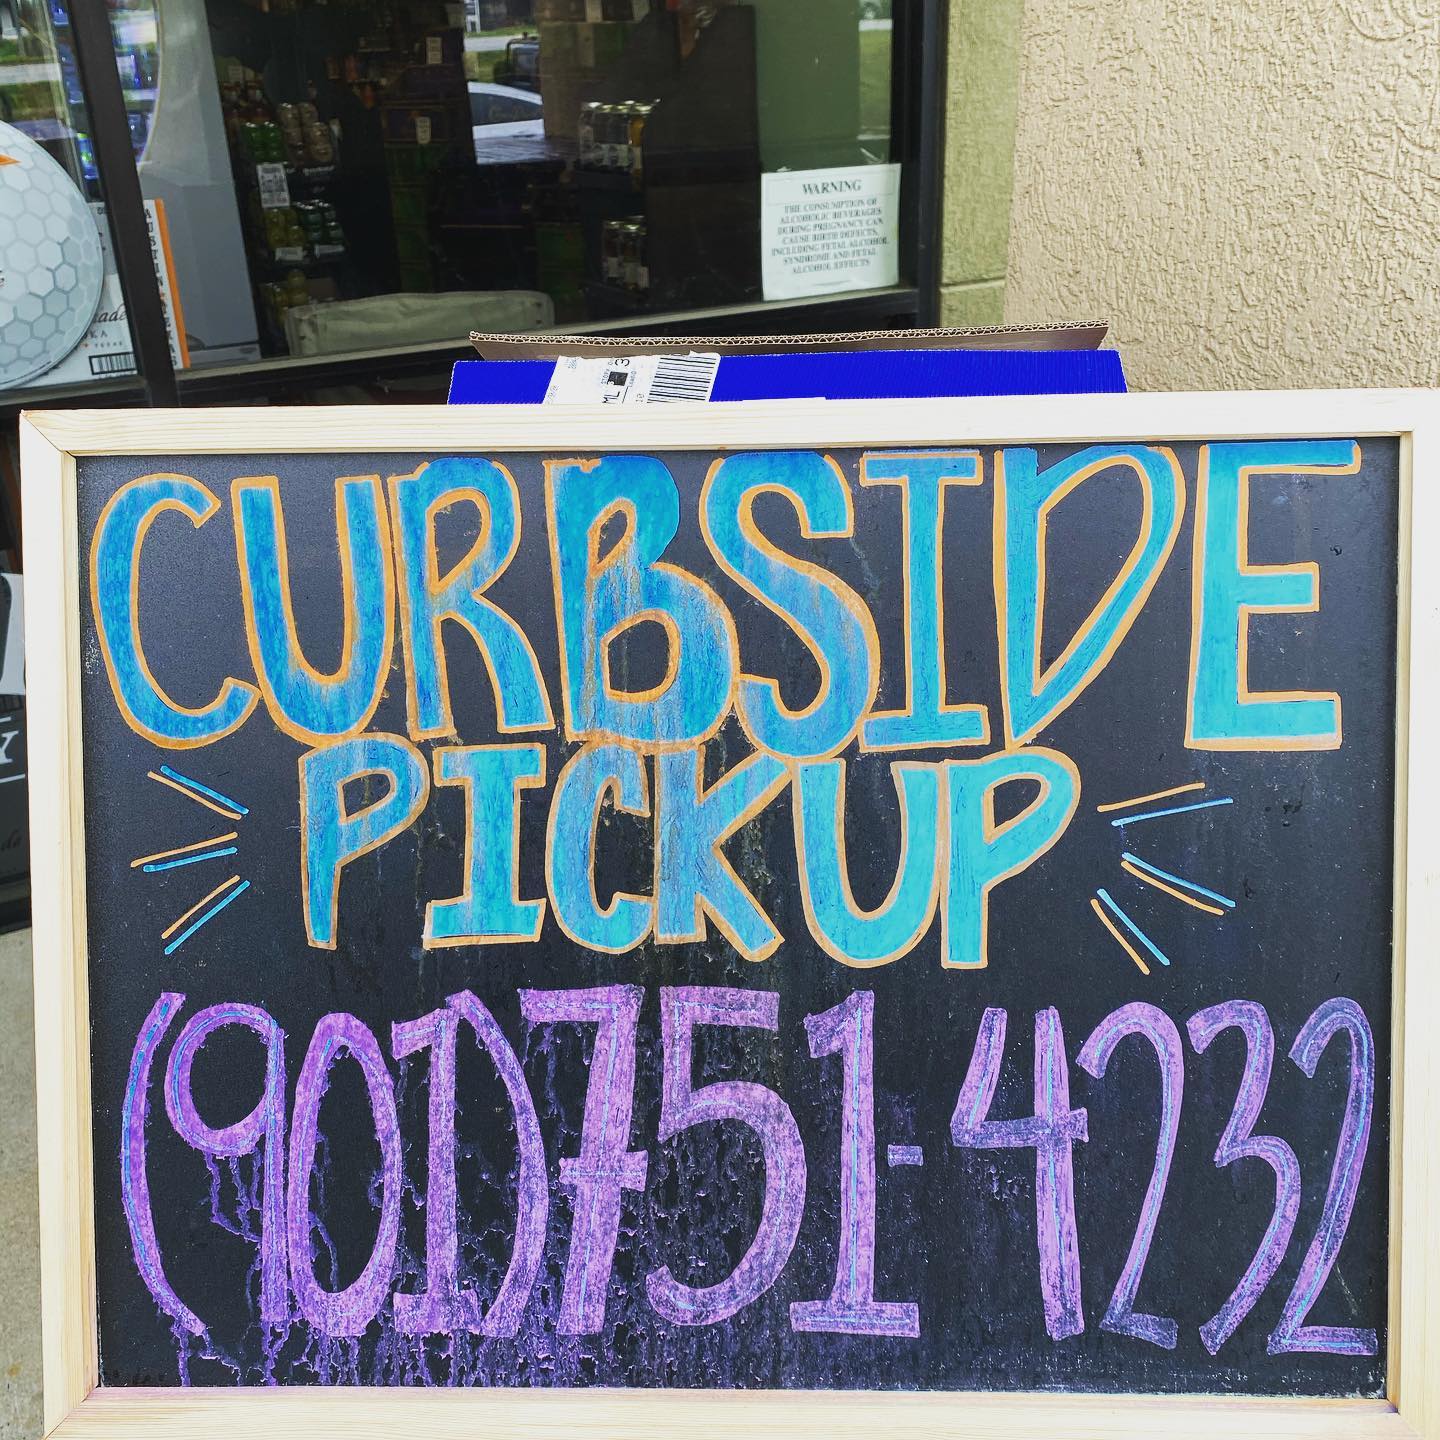 WARNING
THE CONSUMPTION OF
ALCOHOLIC BEVERAGES
DURING PREGNANCY CAN
CAUSE BIRTH DEFECTS,
INCLUDING FETAL ALCOHOL
SYNDROME AND FETAL
ALCOHOL EFFECTS
AUSTIN
CURBSIDE
PICKUP
(901)751-4232